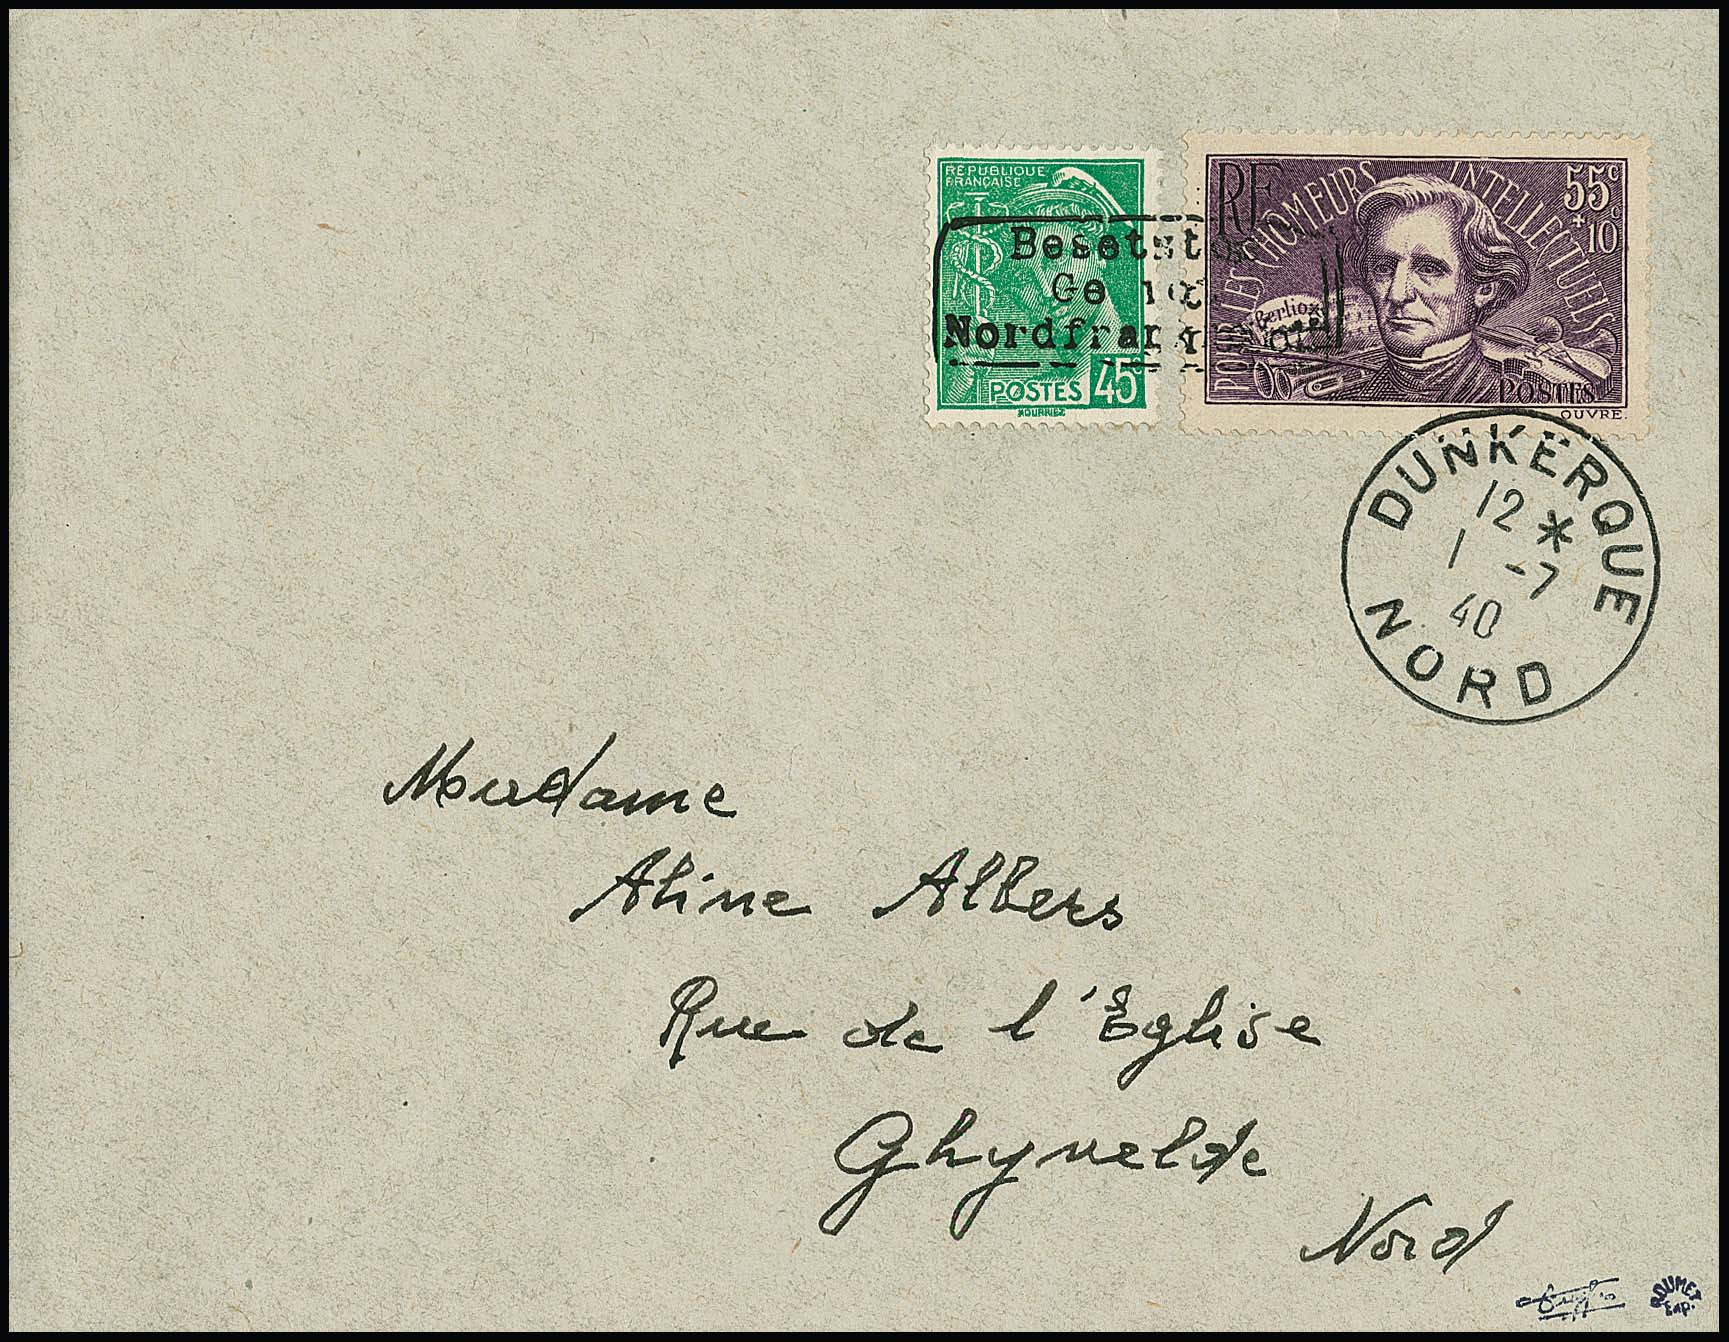 RÉPUBLIQUE
FRANÇAISE
POSTES 45c
RF
POUR LES CHOMEURS INTELLECTUELS
55c
+10c
Berlioz
POSTES
OUVRÉ.
Besetztes
Nordfrankreich
DUNKERQUE
12 *
1 -7
40
NORD
Madame
Aline Albers
Rue de l'Église
Ghyvelde
Nord
ROUMET
Exp.